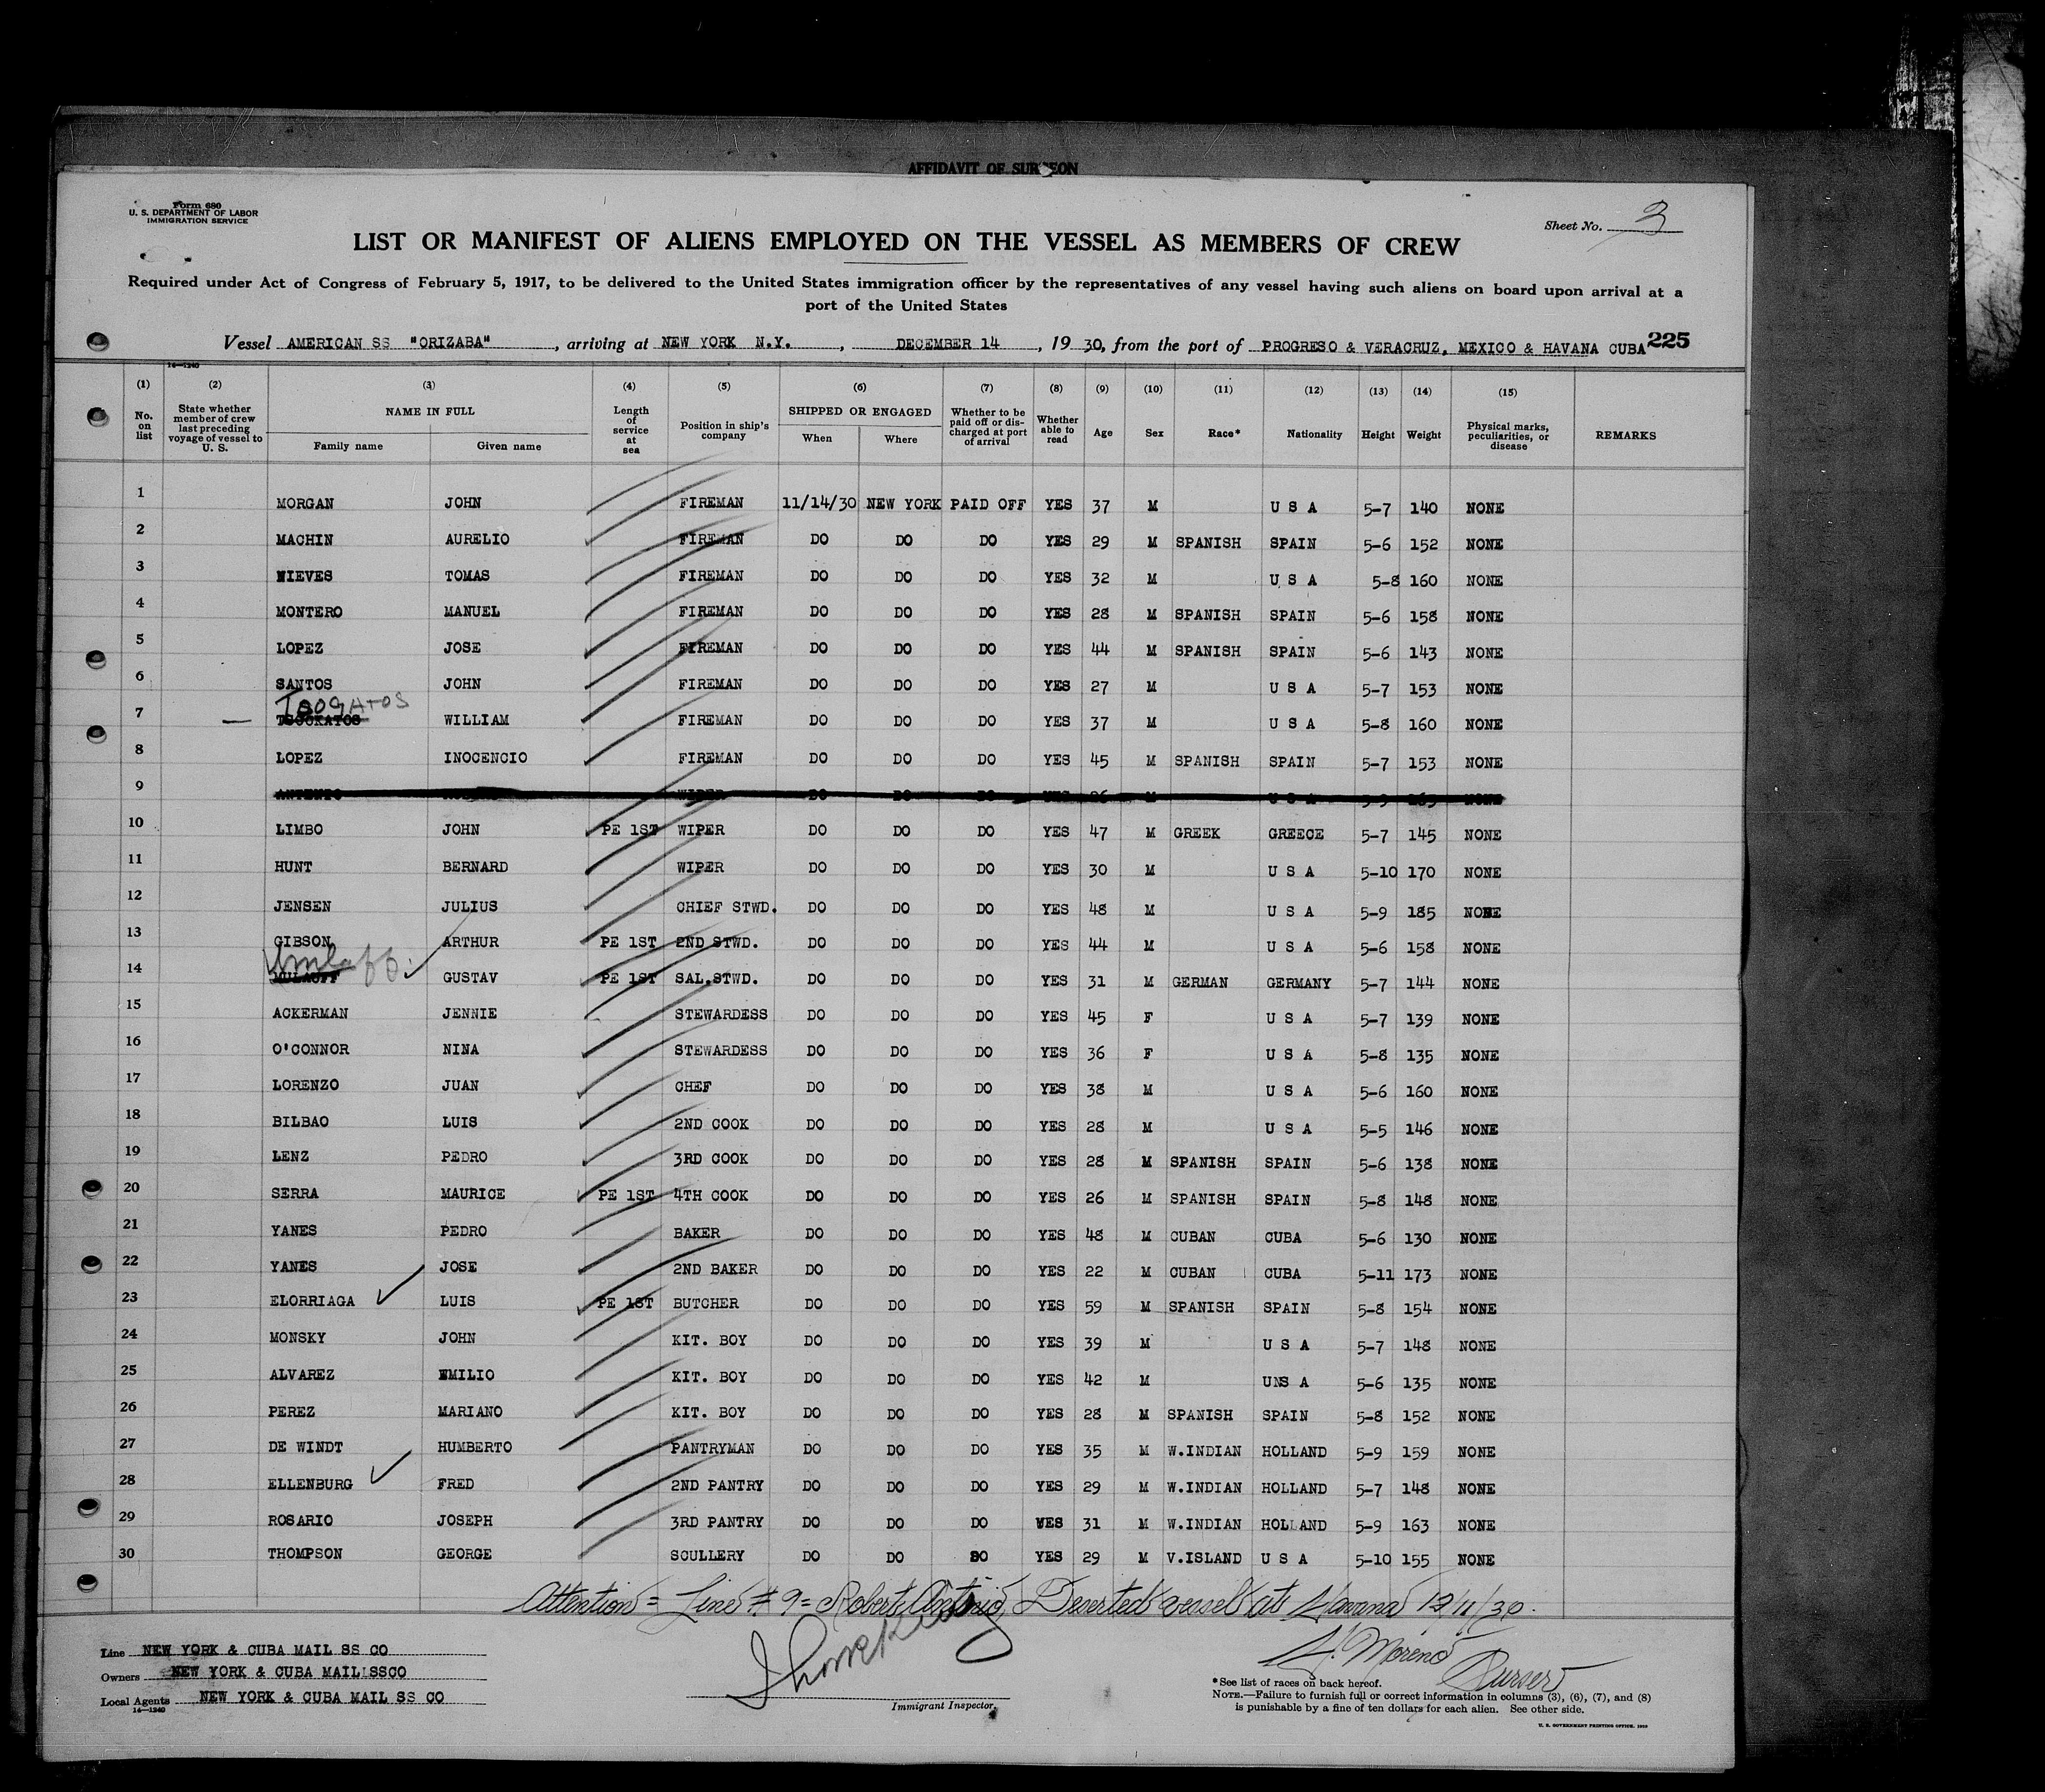 AFFIDAVIT OF SURGEON
Form 680
U. S. DEPARTMENT OF LABOR
IMMIGRATION SERVICE
Sheet No. 3
LIST OR MANIFEST OF ALIENS EMPLOYED ON THE VESSEL AS MEMBERS OF CREW
Required under Act of Congress of February 5, 1917, to be delivered to the United States immigration officer by the representatives of any vessel having such aliens on board upon arrival at a
port of the United States
Vessel AMERICAN SS "ORIZABA", arriving at NEW YORK N.Y., DECEMBER 14, 19 30, from the port of PROGRESO & VERACRUZ, MEXICO & HAVANA CUBA 225
14—1240
(1) No. on list (2) State whether member of crew last preceding voyage of vessel to U. S. (3) NAME IN FULL Family name Given name (4) Length of service at sea (5) Position in ship's company (6) SHIPPED OR ENGAGED When Where (7) Whether to be paid off or discharged at port of arrival (8) Whether able to read (9) Age (10) Sex (11) Race* (12) Nationality (13) Height (14) Weight (15) Physical marks, peculiarities, or disease REMARKS
1 MORGAN JOHN FIREMAN 11/14/30 NEW YORK PAID OFF YES 37 M U S A 5-7 140 NONE
2 MACHIN AURELIO FIREMAN DO DO DO YES 29 M SPANISH SPAIN 5-6 152 NONE
3 NIEVES TOMAS FIREMAN DO DO DO YES 32 M U S A 5-8 160 NONE
4 MONTERO MANUEL FIREMAN DO DO DO YES 28 M SPANISH SPAIN 5-6 158 NONE
5 LOPEZ JOSE FIREMAN DO DO DO YES 44 M SPANISH SPAIN 5-6 143 NONE
6 SANTOS JOHN FIREMAN DO DO DO YES 27 M U S A 5-7 153 NONE
TSOGATOS
7 TSOCKATOS WILLIAM FIREMAN DO DO DO YES 37 M U S A 5-8 160 NONE
8 LOPEZ INOCENCIO FIREMAN DO DO DO YES 45 M SPANISH SPAIN 5-7 153 NONE
9 ANTONIO WIPER DO DO DO YES 26 M U S A 5-9 NONE
10 LIMBO JOHN PE 1ST WIPER DO DO DO YES 47 M GREEK GREECE 5-7 145 NONE
11 HUNT BERNARD WIPER DO DO DO YES 30 M U S A 5-10 170 NONE
12 JENSEN JULIUS CHIEF STWD. DO DO DO YES 48 M U S A 5-9 185 NONE
13 GIBSON ARTHUR PE 1ST 2ND STWD. DO DO DO YES 44 M U S A 5-6 158 NONE
Umlauff
14 MULAUFF GUSTAV PE 1ST SAL.STWD. DO DO DO YES 31 M GERMAN GERMANY 5-7 144 NONE
15 ACKERMAN JENNIE STEWARDESS DO DO DO YES 45 F U S A 5-7 139 NONE
16 O'CONNOR NINA STEWARDESS DO DO DO YES 36 F U S A 5-8 135 NONE
17 LORENZO JUAN CHEF DO DO DO YES 38 M U S A 5-6 160 NONE
18 BILBAO LUIS 2ND COOK DO DO DO YES 28 M U S A 5-5 146 NONE
19 LENZ PEDRO 3RD COOK DO DO DO YES 28 M SPANISH SPAIN 5-6 138 NONE
20 SERRA MAURICE PE 1ST 4TH COOK DO DO DO YES 26 M SPANISH SPAIN 5-8 148 NONE
21 YANES PEDRO BAKER DO DO DO YES 48 M CUBAN CUBA 5-6 130 NONE
22 YANES JOSE 2ND BAKER DO DO DO YES 22 M CUBAN CUBA 5-11 173 NONE
23 ELORRIAGA LUIS PE 1ST BUTCHER DO DO DO YES 59 M SPANISH SPAIN 5-8 154 NONE
24 MONSKY JOHN KIT. BOY DO DO DO YES 39 M U S A 5-7 148 NONE
25 ALVAREZ EMILIO KIT. BOY DO DO DO YES 42 M UNS A 5-6 135 NONE
26 PEREZ MARIANO KIT. BOY DO DO DO YES 28 M SPANISH SPAIN 5-8 152 NONE
27 DE WINDT HUMBERTO PANTRYMAN DO DO DO YES 35 M W.INDIAN HOLLAND 5-9 159 NONE
28 ELLENBURG FRED 2ND PANTRY DO DO DO YES 29 M W.INDIAN HOLLAND 5-7 148 NONE
29 ROSARIO JOSEPH 3RD PANTRY DO DO DO YES 31 M W.INDIAN HOLLAND 5-9 163 NONE
30 THOMPSON GEORGE SCULLERY DO DO DO YES 29 M V.ISLAND U S A 5-10 155 NONE
Attention = Line # 9 = Robert Antonio, Deserted vessel at Havana 12/11/30.
Line NEW YORK & CUBA MAIL SS CO
Owners NEW YORK & CUBA MAIL SSCO
Local Agents NEW YORK & CUBA MAIL SS CO
14—1240
Immigrant Inspector.
Moreno Purser
*See list of races on back hereof.
NOTE.—Failure to furnish full or correct information in columns (3), (6), (7), and (8)
is punishable by a fine of ten dollars for each alien. See other side.
U. S. GOVERNMENT PRINTING OFFICE